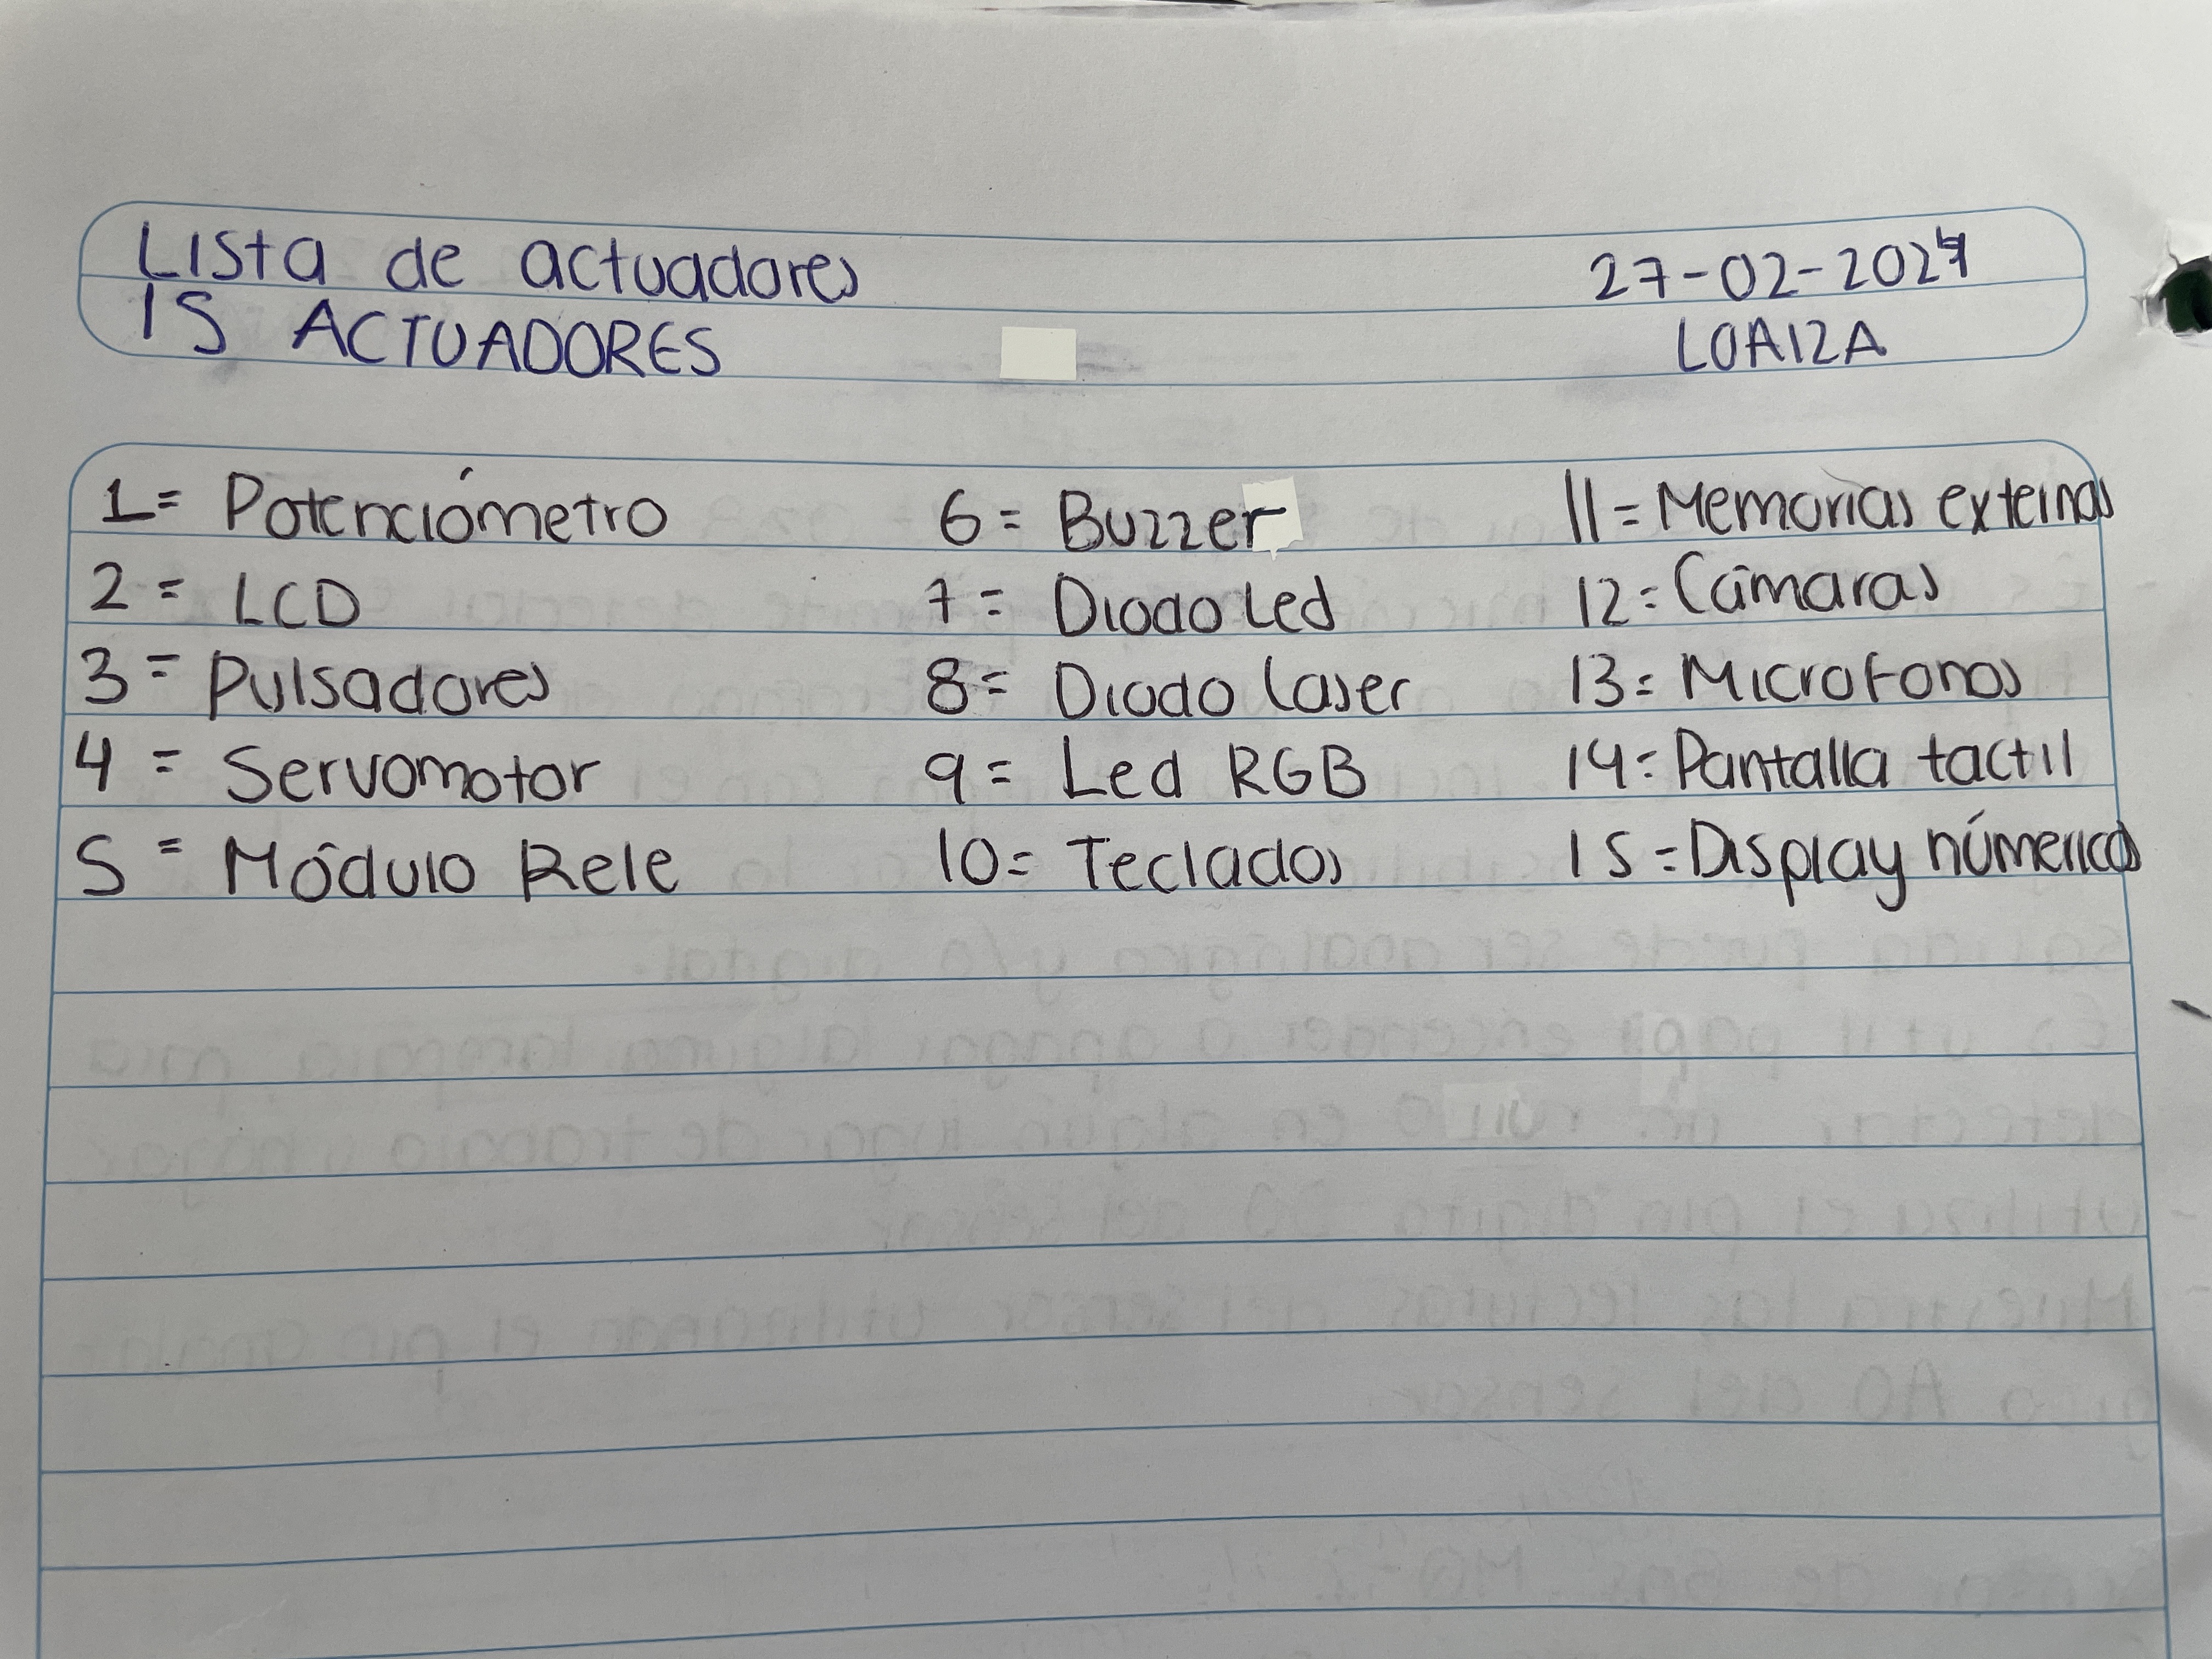 Lista de actuadores
15 ACTUADORES
27-02-2024
LOAIZA
1= Potenciómetro
2= LCD
3= Pulsadores
4= Servomotor
5= Módulo Rele
6= Buzzer
7= Diodo Led
8= Diodo laser
9= Led RGB
10= Teclados
11= Memorias externas
12= Cámaras
13= Microfonos
14= Pantalla tactil
15= Display númerico